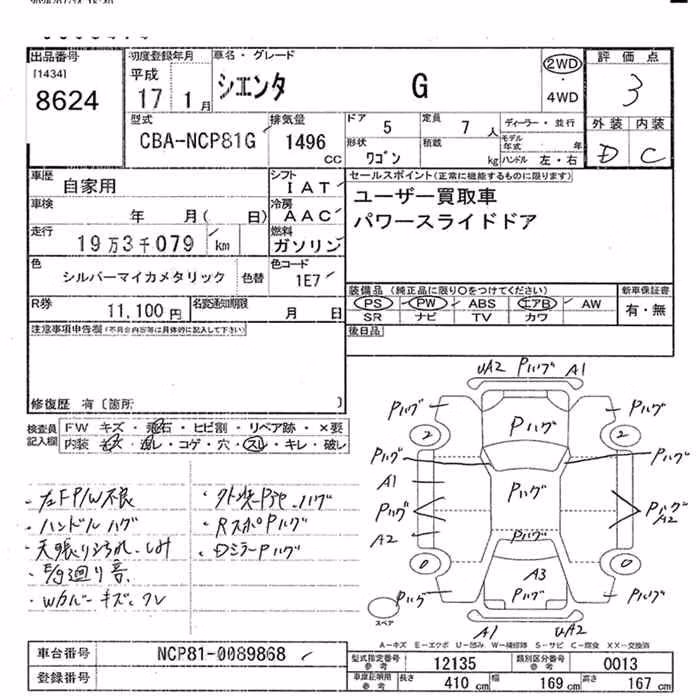 出品番号
[1434]
8624
初度登録年月
平成
17 1月
車名・グレード
シエンタ G
2WD
・
4WD
評価点
3
外装 内装
D C
型式
CBA-NCP81G
排気量
1496
CC
ドア 5
定員 7 人
形状 ワゴン
積載 kg
ディーラー・並行
モデル年式 年
ハンドル 左・右
車歴 自家用
シフト IAT
車検 年 月( 日)
冷房 AAC
走行 19万3千079 km
燃料 ガソリン
色 シルバーマイカメタリック 色替
色コード 1E7
R券 11,100円
名変通知期限 月 日
セールスポイント(正常に機能するものに限ります)
ユーザー買取車
パワースライドドア
装備品(純正品に限り○をつけてください)
PS PW ABS エアB AW
SR ナビ TV カワ
新車保証書
有・無
後日品
注意事項申告欄(不具合内容等は具体的に記入して下さい)
修復歴 有〔箇所 〕
検査員記入欄
FW キズ・飛石・ヒビ割・リペア跡・×要
内装 キズ・汚レ・コゲ・穴・スレ・キレ・破レ
・左F P/W不良
・ハンドルハゲ
・天張り汚れ、シミ
・E/g廻り音
・Wカバーキズ、ワレ
・外装P池、ハゲ
・RスポPハゲ
・DミラーPハゲ
UA2 Pハゲ A1
Pハゲ Pハゲ Pハゲ
2 2
Pハゲ Pハゲ
A1 Pハゲ
Pハゲ Pハゲ
A2 A2
Pハゲ
0 0
A3
Pハゲ Pハゲ Pハゲ
スペア
A1 UA2
A-キズ E-エクボ U-凹み W-補修跡 S-サビ C-腐食 XX-交換済
車台番号 NCP81-0089868
登録番号
型式指定番号 参考 12135
類別区分番号 参考 0013
車庫証明用 参考 長さ 410 cm 幅 169 cm 高さ 167 cm